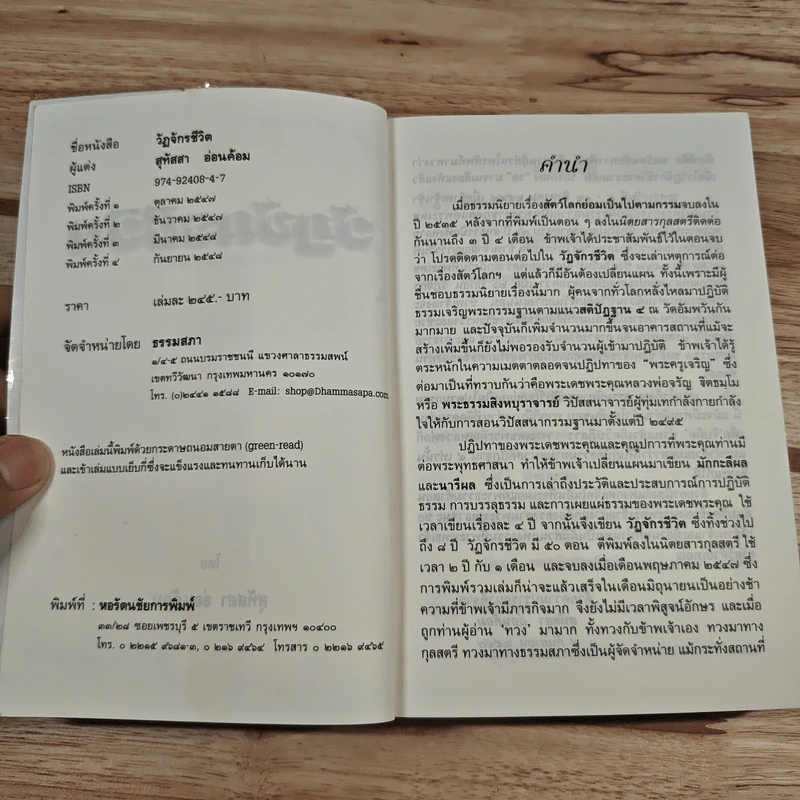 ชื่อหนังสือ วัฏจักรชีวิต
ผู้แต่ง สุทัสสา อ่อนค้อม
ISBN 974-92408-4-7
พิมพ์ครั้งที่ ๑ ตุลาคม ๒๕๔๗
พิมพ์ครั้งที่ ๒ ธันวาคม ๒๕๔๗
พิมพ์ครั้งที่ ๓ มีนาคม ๒๕๔๘
พิมพ์ครั้งที่ ๔ กันยายน ๒๕๔๘
ราคา เล่มละ ๒๔๕.- บาท
จัดจำหน่ายโดย ธรรมสภา
๑/๔-๕ ถนนบรมราชชนนี แขวงศาลาธรรมสพน์
เขตทวีวัฒนา กรุงเทพมหานคร ๑๐๑๗๐
โทร. (๐)๒๔๔๑ ๑๕๘๘ E-mail: shop@Dhammasapa.com
หนังสือเล่มนี้พิมพ์ด้วยกระดาษถนอมสายตา (green-read)
และเข้าเล่มแบบเย็บกี่ซึ่งจะแข็งแรงและทนทานเก็บได้นาน
พิมพ์ที่ : หอรัตนชัยการพิมพ์
๓๓/๒๘ ซอยเพชรบุรี ๕ เขตราชเทวี กรุงเทพฯ ๑๐๔๐๐
โทร. ๐ ๒๒๑๕ ๙๖๘๑-๓, ๐ ๒๑๖ ๙๔๖๔ โทรสาร ๐ ๒๒๑๖ ๙๔๖๕
คำนำ
เมื่อธรรมนิยายเรื่องสัตว์โลกย่อมเป็นไปตามกรรมจบลงใน
ปี ๒๕๓๕ หลังจากที่พิมพ์เป็นตอน ๆ ลงในนิตยสารกุลสตรีติดต่อ
กันนานถึง ๓ ปี ๔ เดือน ข้าพเจ้าได้ประชาสัมพันธ์ไว้ในตอนจบ
ว่า โปรดติดตามตอนต่อไปใน วัฏจักรชีวิต ซึ่งจะเล่าเหตุการณ์ต่อ
จากเรื่องสัตว์โลกฯ แต่แล้วก็มีอันต้องเปลี่ยนแผน ทั้งนี้เพราะมีผู้
ชื่นชอบธรรมนิยายเรื่องนี้มาก ผู้คนจากทั่วโลกหลั่งไหลมาปฏิบัติ
ธรรมเจริญพระกรรมฐานตามแนวสติปัฏฐาน ๔ ณ วัดอัมพวันกัน
มากมาย และปัจจุบันก็เพิ่มจำนวนมากขึ้นจนอาคารสถานที่แม้จะ
สร้างเพิ่มขึ้นก็ยังไม่พอรองรับจำนวนผู้เข้ามาปฏิบัติ ข้าพเจ้าได้รู้
ตระหนักในความเมตตาตลอดจนปฏิปทาของ “พระครูเจริญ” ซึ่ง
ต่อมาเป็นที่ทราบกันว่าคือพระเดชพระคุณหลวงพ่อจรัญ ฐิตธมฺโม
หรือ พระธรรมสิงหบุราจารย์ วิปัสสนาจารย์ผู้ทุ่มเทกำลังกายกำลัง
ใจให้กับการสอนวิปัสสนากรรมฐานมาตั้งแต่ปี ๒๔๙๕
ปฏิปทาของพระเดชพระคุณและคุณูปการที่พระคุณท่านมี
ต่อพระพุทธศาสนา ทำให้ข้าพเจ้าเปลี่ยนแผนมาเขียน มักกะลีผล
และนารีผล ซึ่งเป็นการเล่าถึงประวัติและประสบการณ์การปฏิบัติ
ธรรม การบรรลุธรรม และการเผยแผ่ธรรมของพระเดชพระคุณ ใช้
เวลาเขียนเรื่องละ ๔ ปี จากนั้นจึงเขียน วัฏจักรชีวิต ซึ่งทิ้งช่วงไป
ถึง ๘ ปี วัฏจักรชีวิต มี ๕๐ ตอน ตีพิมพ์ลงในนิตยสารกุลสตรี ใช้
เวลา ๒ ปี กับ ๑ เดือน และจบลงเมื่อเดือนพฤษภาคม ๒๕๔๗ ซึ่ง
การพิมพ์รวมเล่มก็น่าจะแล้วเสร็จในเดือนมิถุนายนเป็นอย่างช้า
ความที่ข้าพเจ้ามีภารกิจมาก จึงยังไม่มีเวลาพิสูจน์อักษร และเมื่อ
ถูกท่านผู้อ่าน ‘ทวง’ มามาก ทั้งทวงกับข้าพเจ้าเอง ทวงมาทาง
กุลสตรี ทวงมาทางธรรมสภาซึ่งเป็นผู้จัดจำหน่าย แม้กระทั่งสถานที่